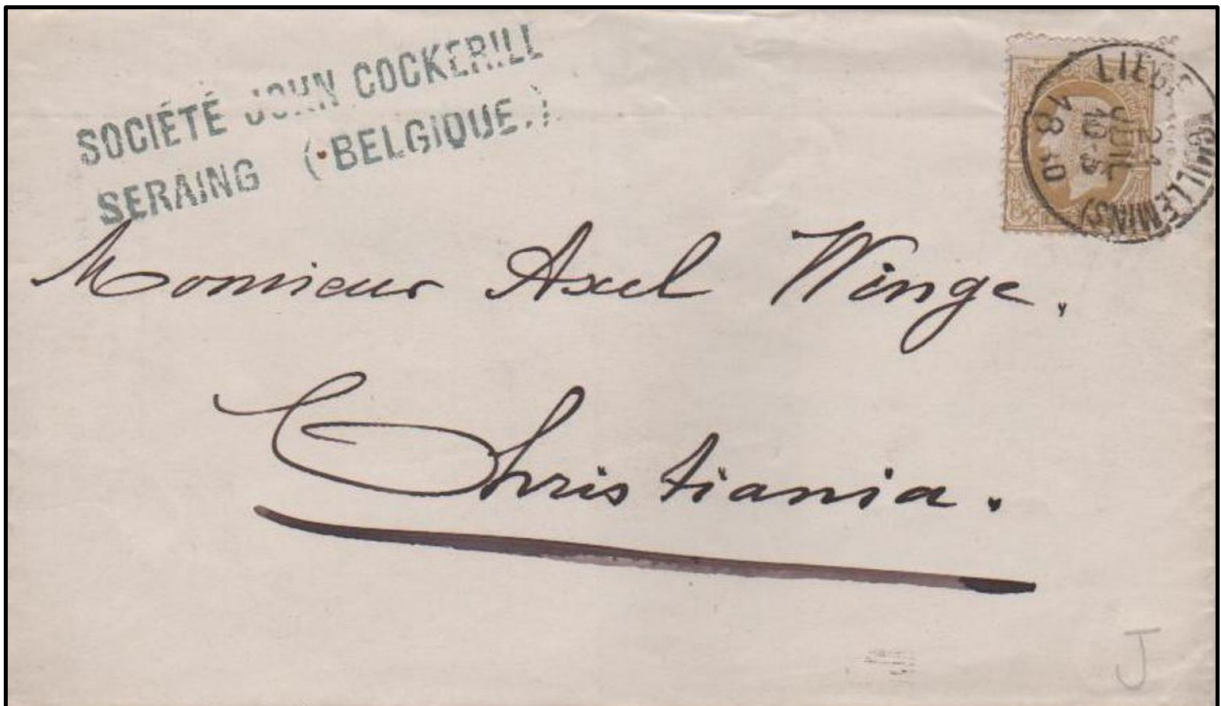 SOCIÉTÉ JOHN COCKERILL
SERAING (BELGIQUE.)
LIEGE (GUILLEMINS)
21
JUIL
10-S
18 80
Monsieur Axel Winge.
Christiania.
J